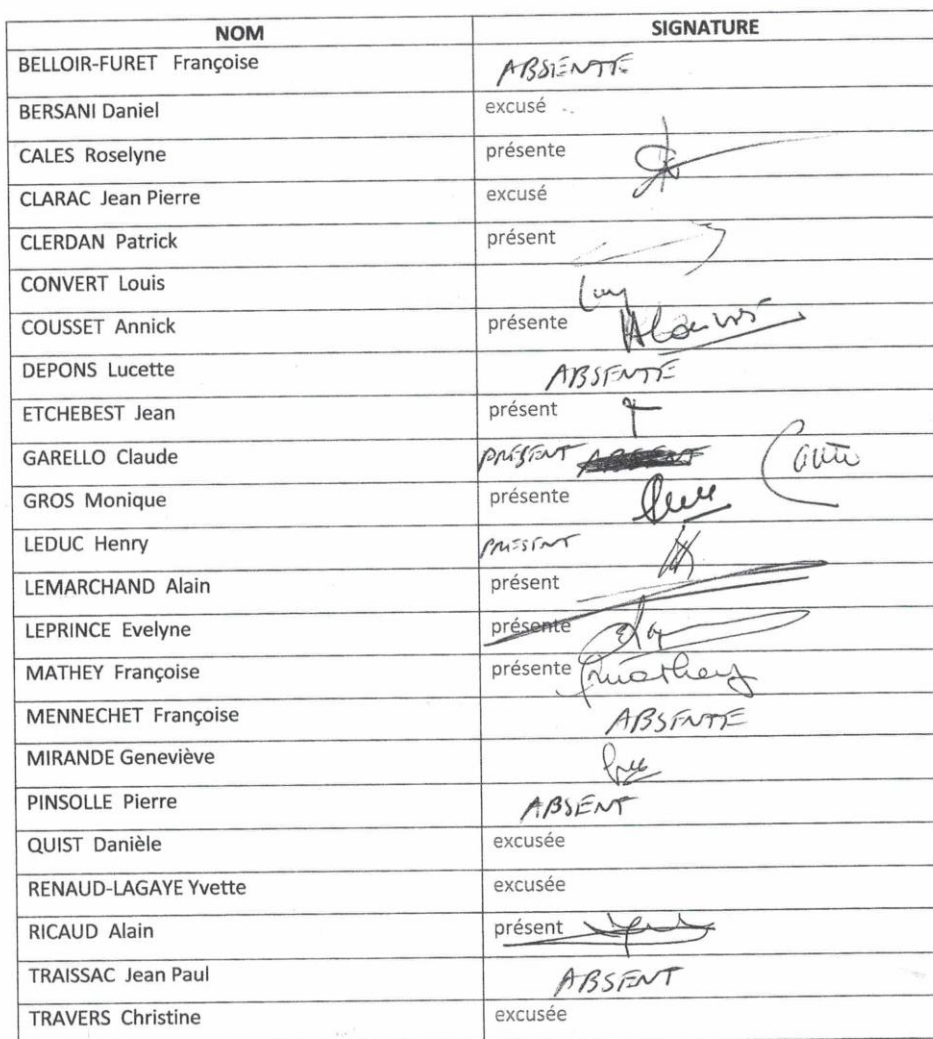 NOM SIGNATURE
BELLOIR-FURET Françoise ABSENTE
BERSANI Daniel excusé
CALES Roselyne présente
CLARAC Jean Pierre excusé
CLERDAN Patrick présent
CONVERT Louis
COUSSET Annick présente
DEPONS Lucette ABSENTE
ETCHEBEST Jean présent
GARELLO Claude PRÉSENT ABSENT
GROS Monique présente
LEDUC Henry PRESENT
LEMARCHAND Alain présent
LEPRINCE Evelyne présente
MATHEY Françoise présente Mathey
MENNECHET Françoise ABSENTE
MIRANDE Geneviève
PINSOLLE Pierre ABSENT
QUIST Danièle excusée
RENAUD-LAGAYE Yvette excusée
RICAUD Alain présent
TRAISSAC Jean Paul ABSENT
TRAVERS Christine excusée